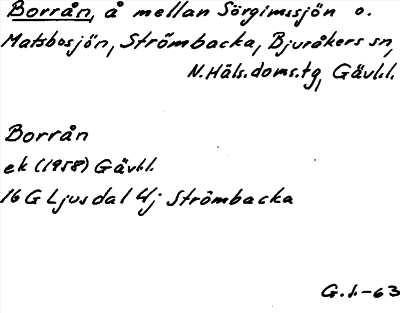 Borrån, å mellan Sörgimssjön o.
Matsbosjön, Strömbacka, Bjuråkers sn,
N.Häls.doms.tg, Gävl.l.
Borrån
ek (1958) Gävl.l.
16 G Ljusdal 4j Strömbacka
G.l.-63